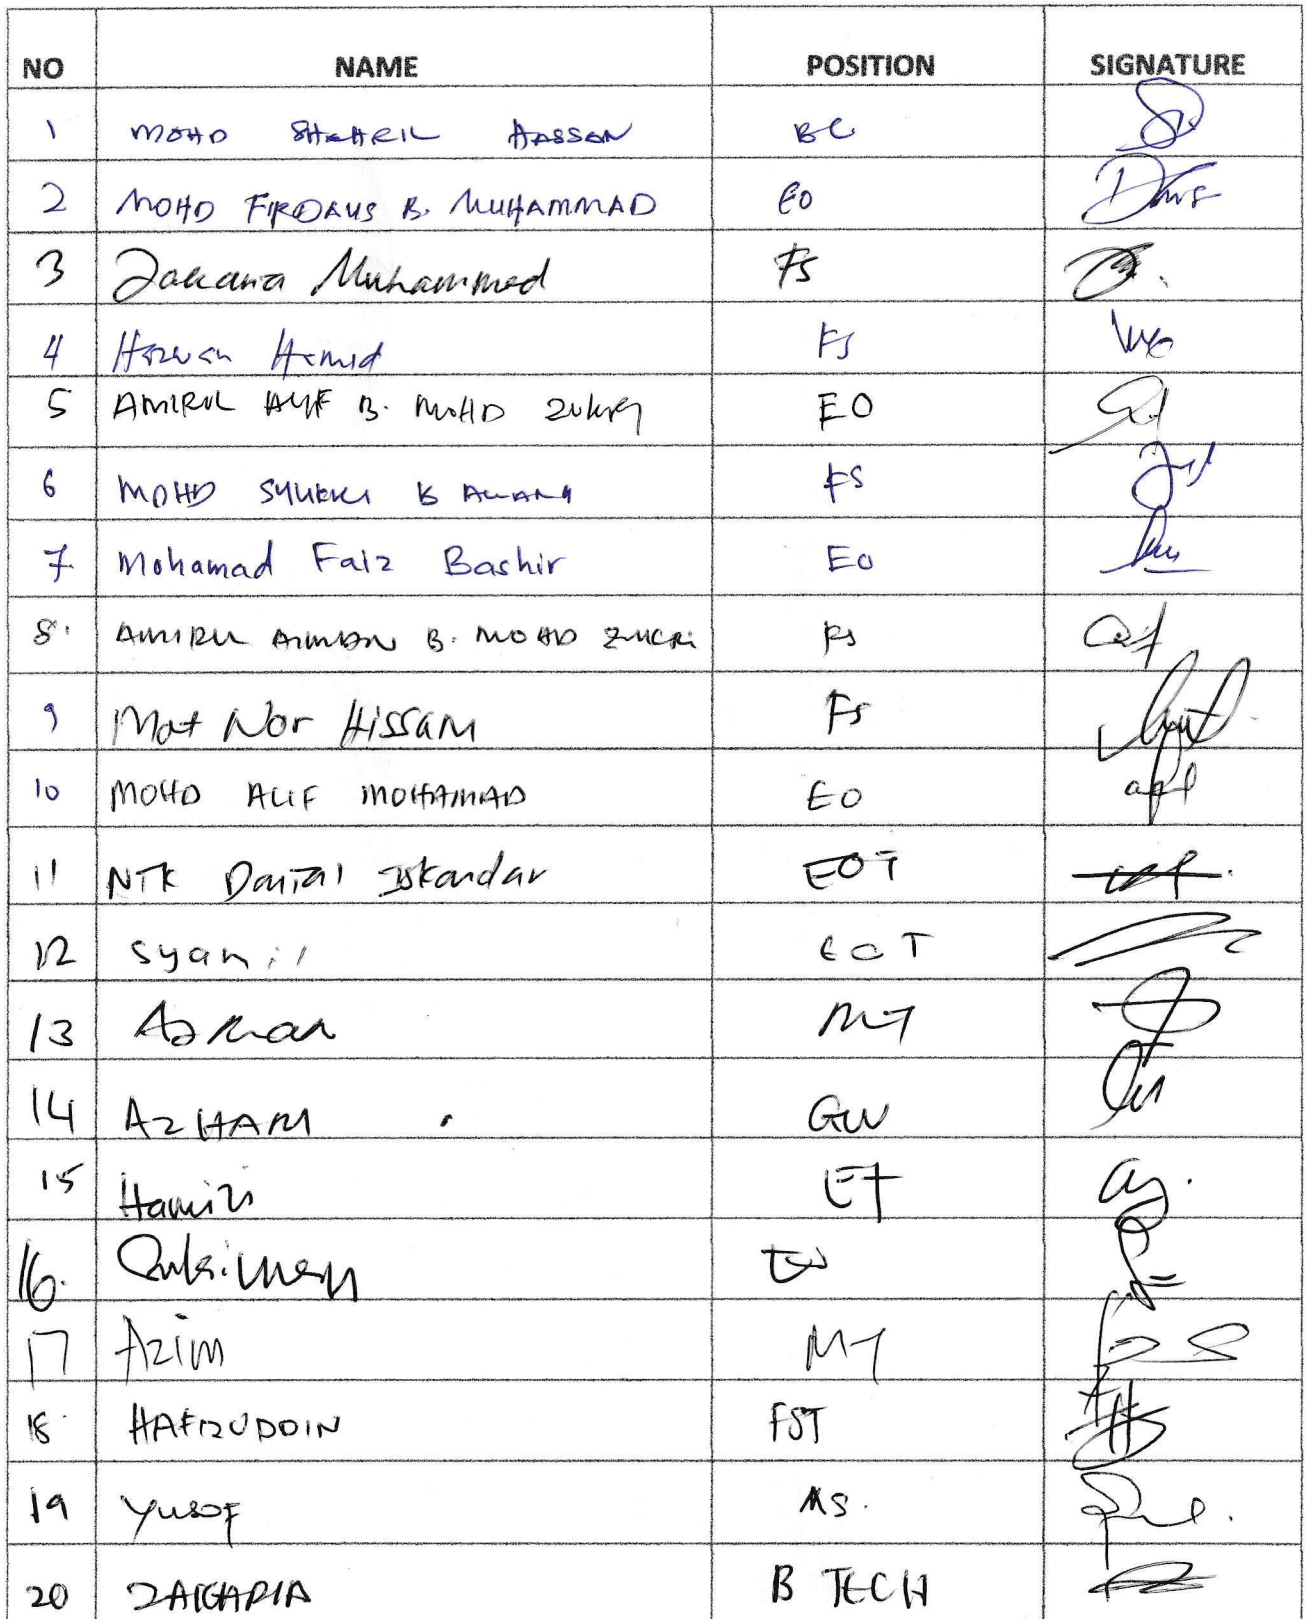 NO NAME POSITION SIGNATURE
1 MOHD SHAHRIL HASSAN BC
2 MOHD FIRDAUS B. MUHAMMAD EO
3 Zakaria Muhammed FS
4 Hazwan Hamid FS
5 AMIRUL ALIF B. MOHD ZUKRI EO
6 MOHD SYUKRI B AWANG FS
7 Mohamad Faiz Bashir EO
8. AMIRUL AIMAN B. MOHD ZUKRI FS
9 Mat Nor Hissam FS
10 MOHD ALIF MOHAMAD EO
11 NIK Danial Iskandar EOT
12 Syamil EOT
13 Azman MT
14 AZHAM GW
15 Hamizi ET
16.
17 Azim MT
18 HAFIZUDDIN FST
19 Yusof MS.
20 ZAKARIA B TECH